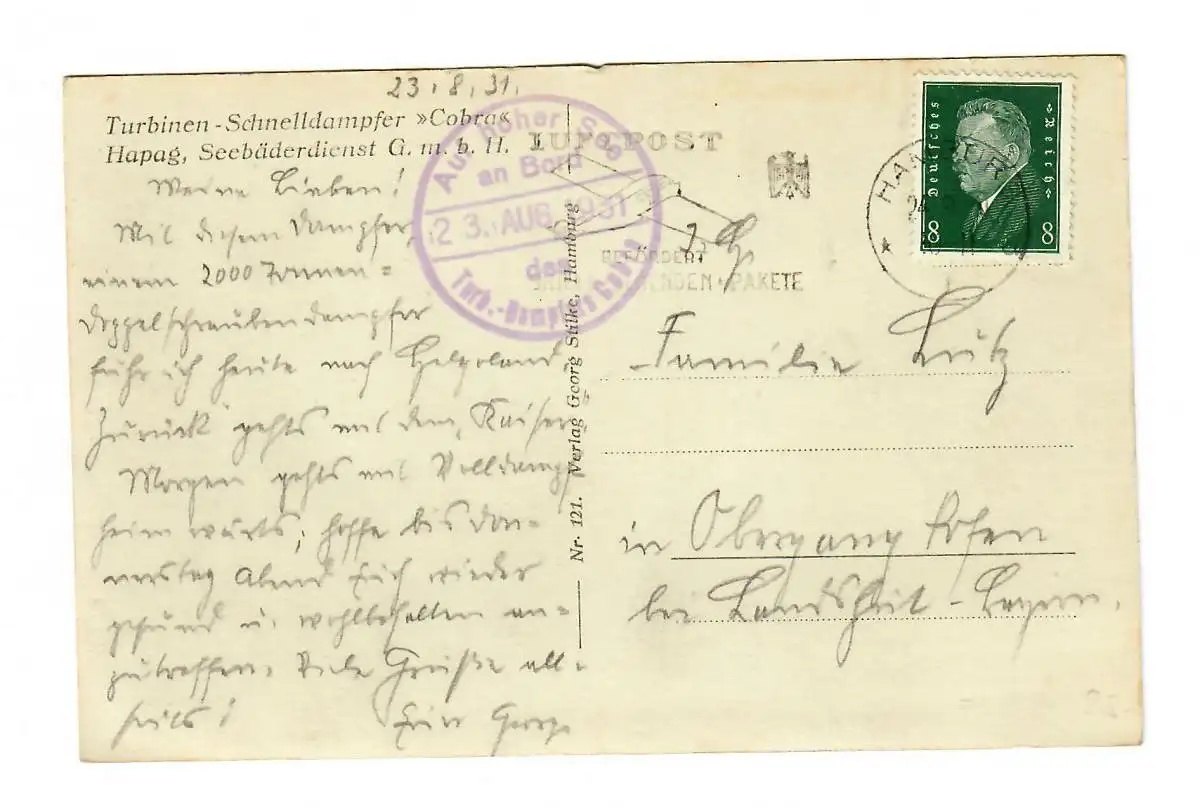 23.8.31.
Turbinen-Schnelldampfer »Cobra«
Hapag, Seebäderdienst G. m. b. H.
Meine Lieben!
Mit diesem Dampfer,
einem 2000 Tonnen=
Doppelschraubendampfer
fuhr ich heute nach Helgoland.
Zurück gehts mit dem „Kaiser
Morgen gehts mit Volldampf
heimwärts; hoffe bis Don-
nerstag Abend Euch wieder
gesund u. wohlbehalten an=
zutreffen. Viele Grüße all=
seits!
Euer Georg.
Auf hoher See
an Bord
23. AUG. 1931
des
Turb.-Dampfers Cobra
Nr. 121. Verlag Georg Stilke, Hamburg
LUFTPOST
BEFÖRDERT
PAKETE
HAMBURG
Deutsches Reich
8 8
Familie Lutz
in
bei Landshut - Bayern.